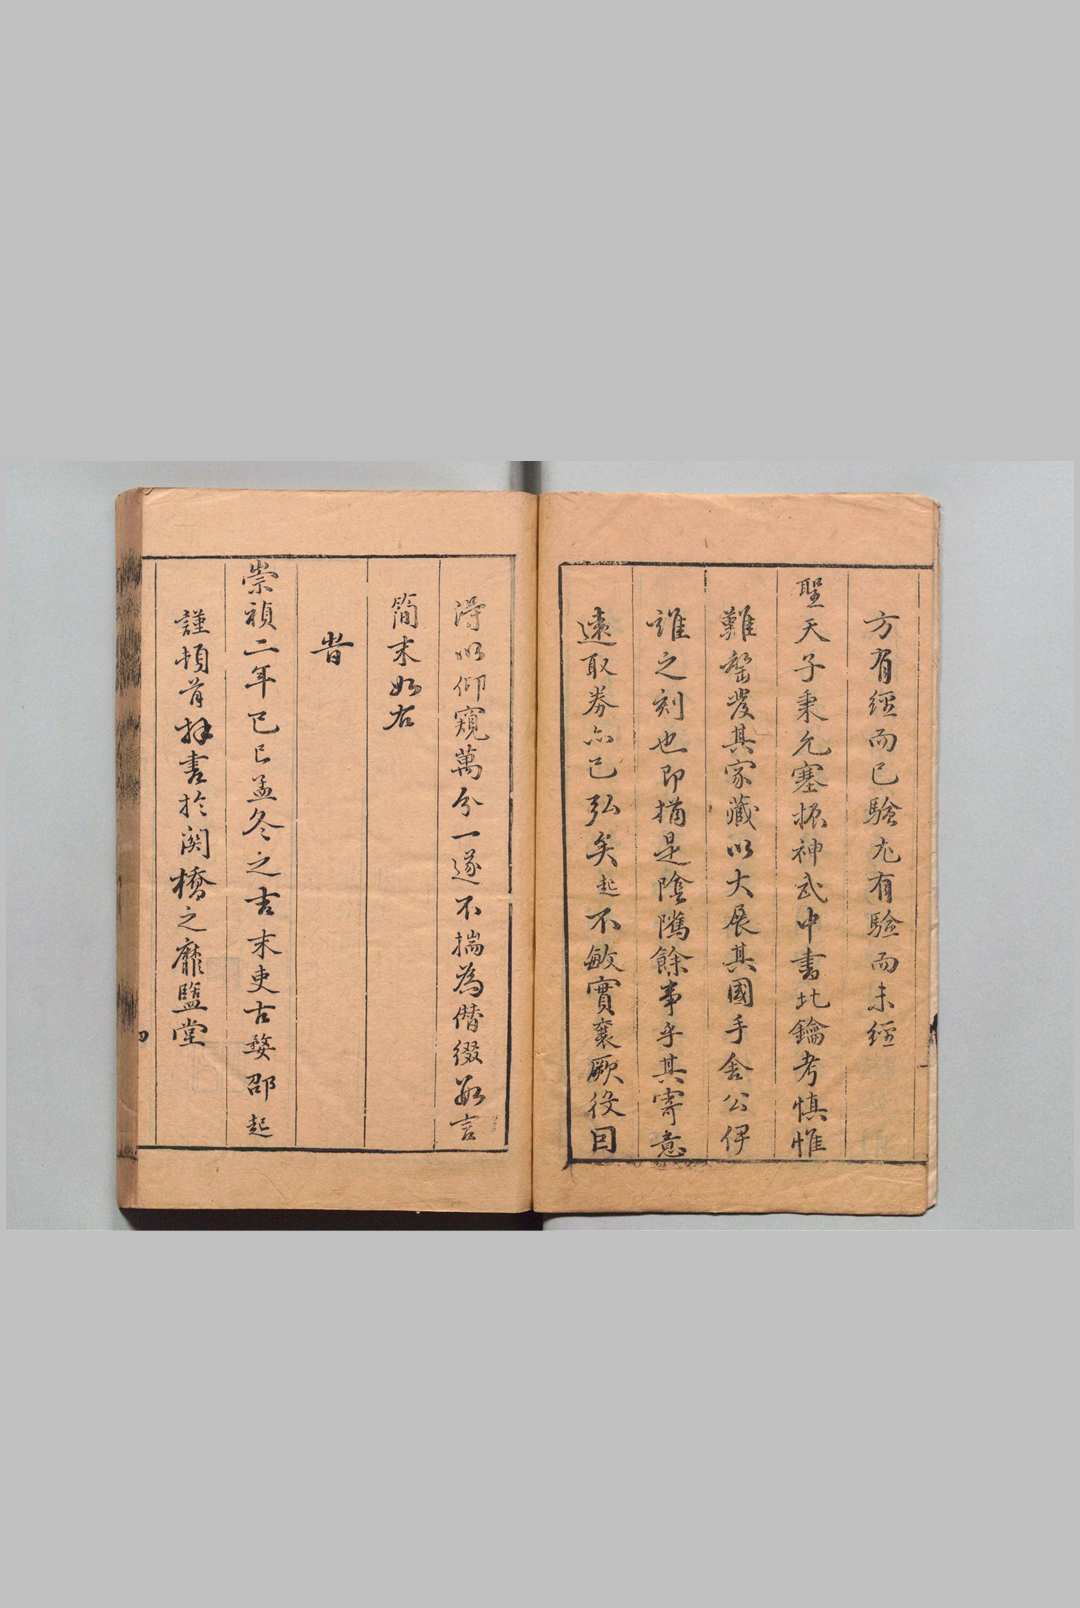 方有經而已驗尤有驗而未經
聖天子秉允塞振神武中書北鑰考慎惟
難罄發其家藏以大展其國手舍公伊
誰之刻也即猶是陰隲餘事乎其寄意
遠取券亦已弘矣起不敏實襄厥役因
得以仰窺萬分一遂不揣為僭綴數言
簡末如右
旹
崇禎二年己巳孟冬之吉末吏古婺邵起
謹頓首拜書於関橋之靡盬堂